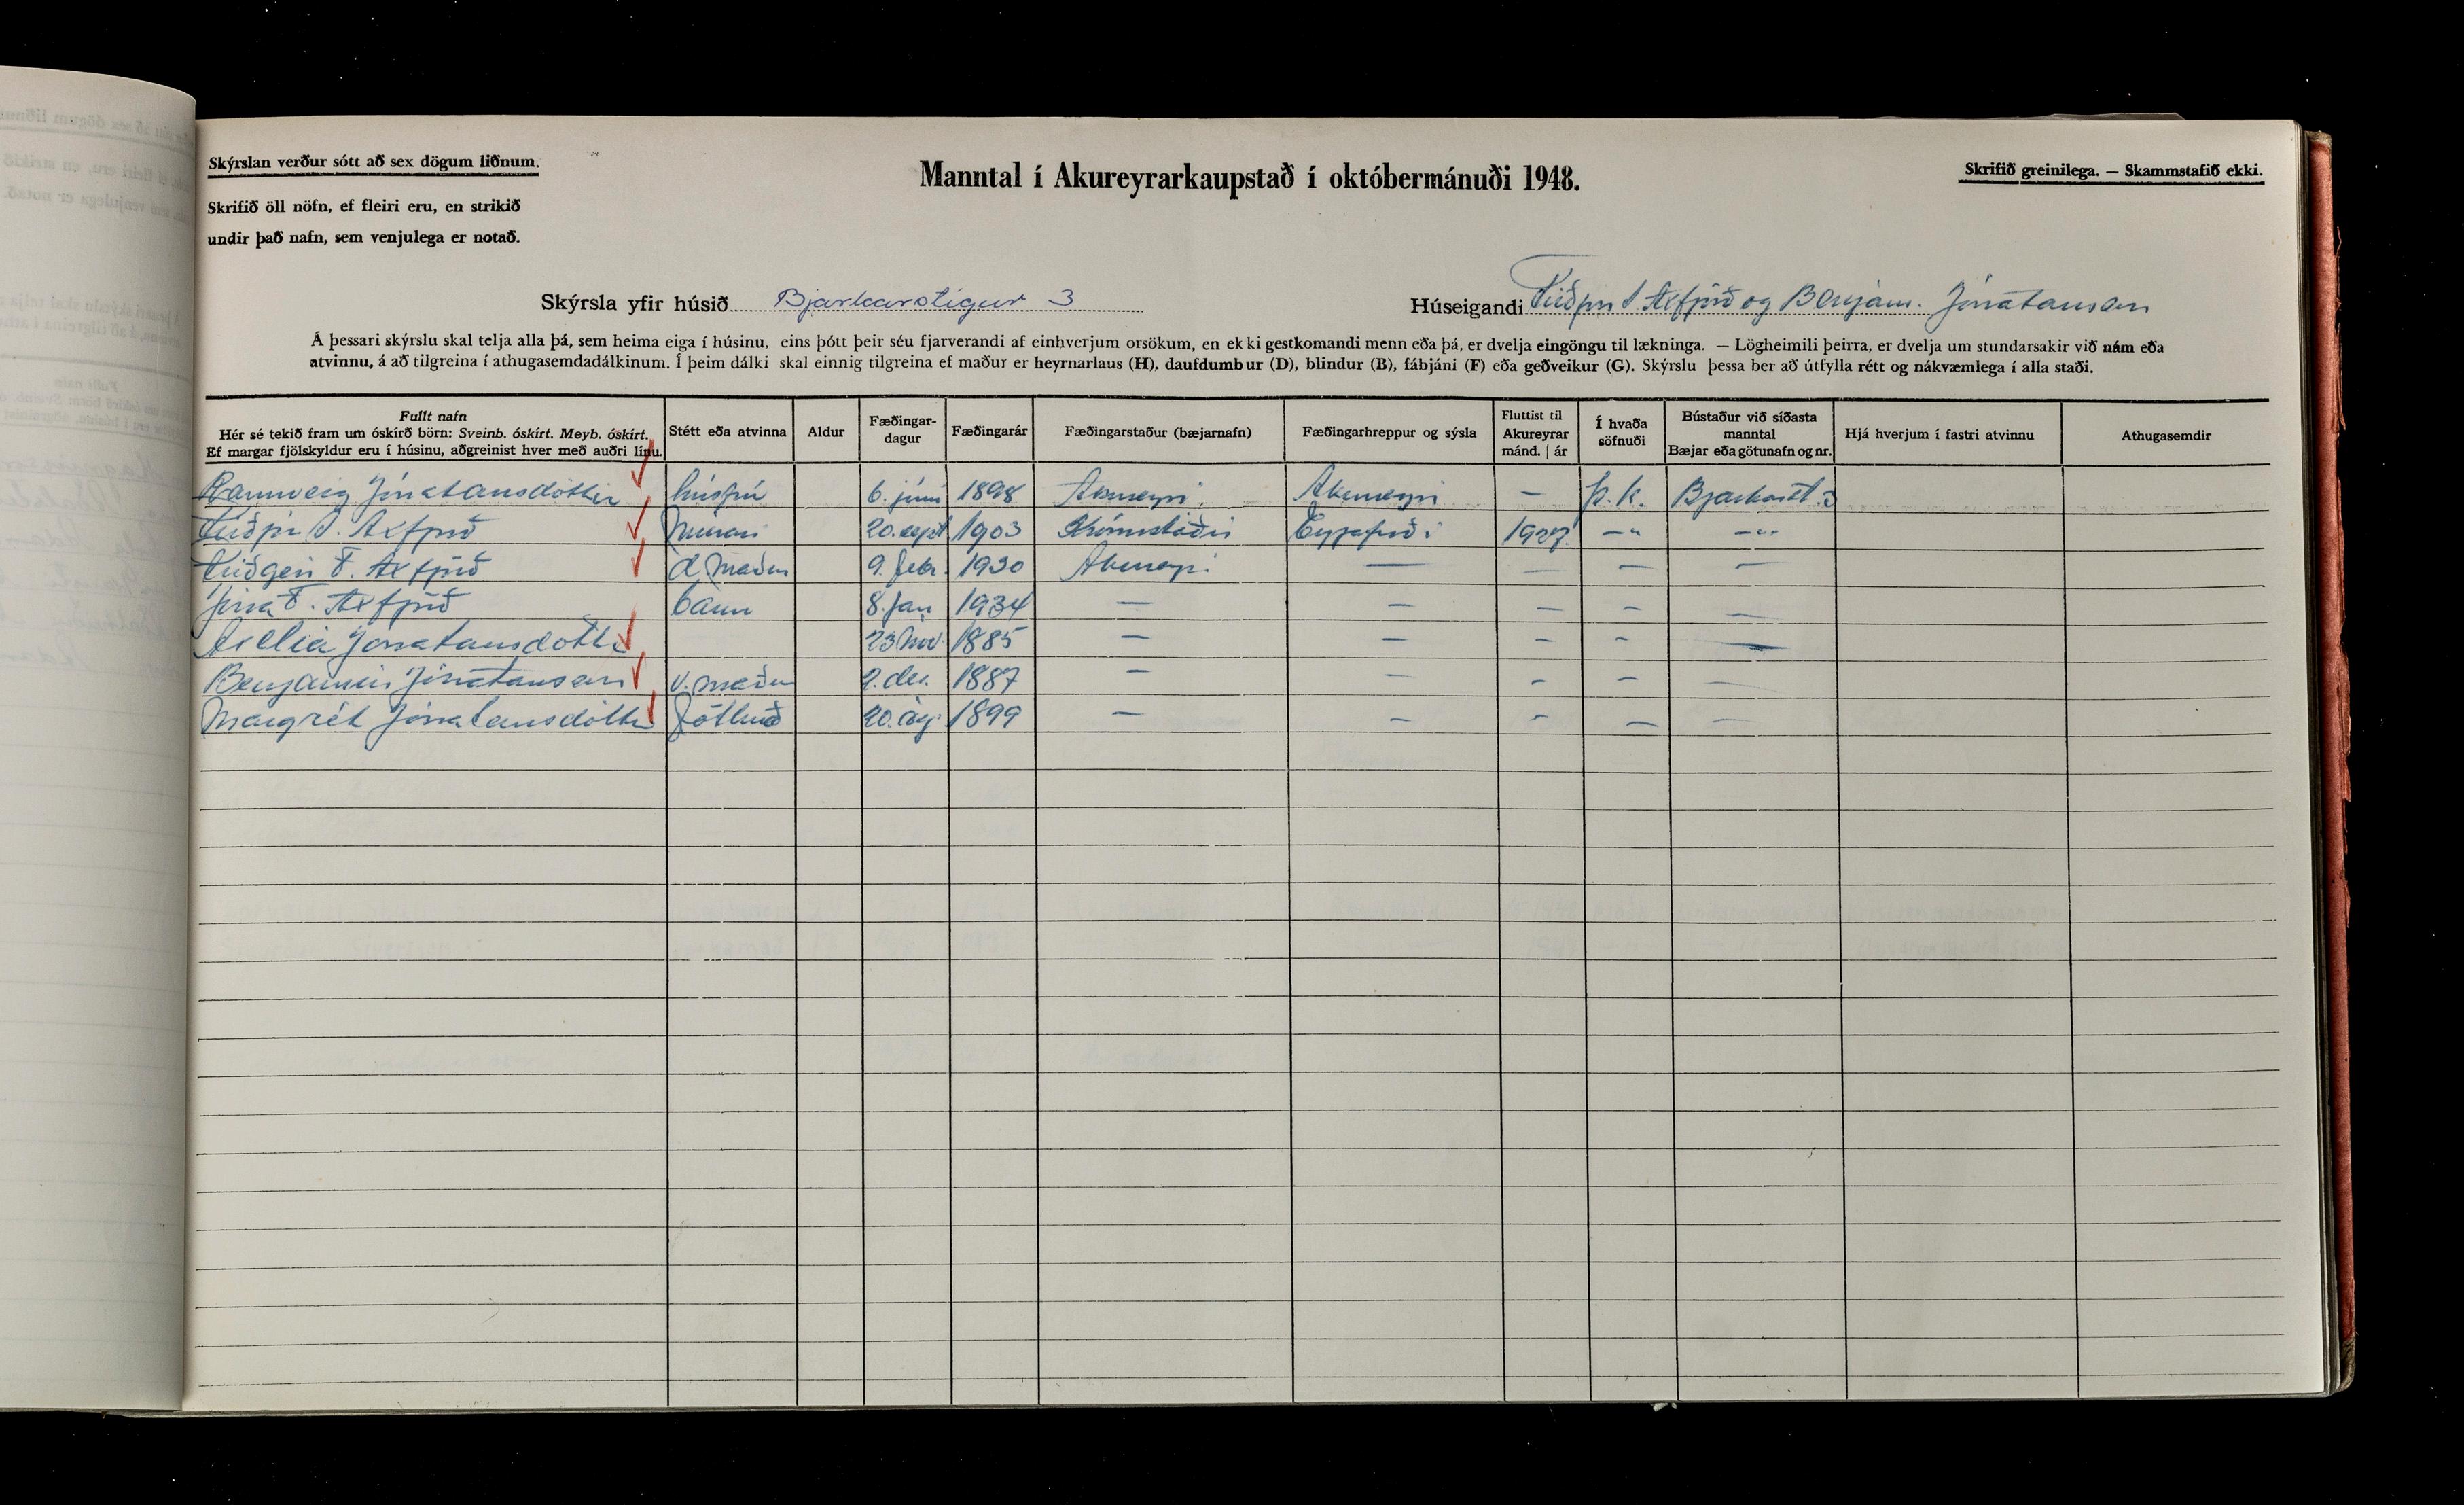 Skýrslan verður sótt að sex dögum liðnum.
Manntal í Akureyrarkaupstað í októbermánuði 1948.
Skrifið greinilega. — Skammstafið ekki.
Skrifið öll nöfn, ef fleiri eru, en strikið
undir það nafn, sem venjulega er notað.
Skýrsla yfir húsið Bjarkarstígur 3
Húseigandi Axfjörð og Benjam. Jónatansson
Á þessari skýrslu skal telja alla þá, sem heima eiga í húsinu, eins þótt þeir séu fjarverandi af einhverjum orsökum, en ekki gestkomandi menn eða þá, er dvelja eingöngu til lækninga. — Lögheimili þeirra, er dvelja um stundarsakir við nám eða
atvinnu, á að tilgreina í athugasemdadálkinum. Í þeim dálki skal einnig tilgreina ef maður er heyrnarlaus (H), daufdumbur (D), blindur (B), fábjáni (F) eða geðveikur (G). Skýrslu þessa ber að útfylla rétt og nákvæmlega í alla staði.
Fullt nafn
Hér sé tekið fram um óskírð börn: Sveinb. óskírt. Meyb. óskírt.
Ef margar fjölskyldur eru í húsinu, aðgreinist hver með auðri línu.
Stétt eða atvinna
Aldur
Fæðingar-
dagur
Fæðingarár
Fæðingarstaður (bæjarnafn)
Fæðingarhreppur og sýsla
Fluttist til
Akureyrar
mánd. | ár
Í hvaða
söfnuði
Bústaður við síðasta
manntal
Bæjar eða götunafn og nr.
Hjá hverjum í fastri atvinnu
Athugasemdir
Rannveig Jónatansdóttir húsfrú 6. júní 1898 Akureyri Akureyri — þ.k. Bjarkarst. 3
Axfjörð múrari 20. sept 1903 Eyjafirði 1927 —"— —"—
F. Axfjörð 9. febr. 1930 Akureyri — — — —
F. Axfjörð barn 8. jan 1934 — — — — —
Jónatansdóttir 23 nóv. 1885 — — — — —
Benjamín Jónatansson v. maður 2. des. 1887 — — — — —
Margrét Jónatansdóttir 20. ág. 1899 — — — — —